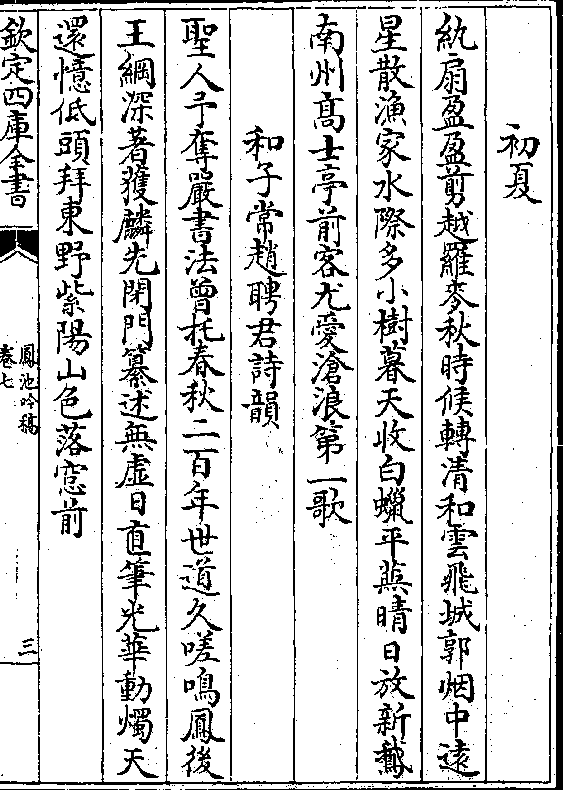 初夏
紈扇盈盈剪越羅麥秋時候轉清和雲飛城郭烟中遠
星散漁家水際多小樹暮天收白蠟平蕪晴日放新鵝
南州髙士亭前客尤愛滄浪第一歌
和子常趙聘君詩韻
聖人予奪嚴書法曾托春秋二百年世道久嗟鳴鳳後
王綱深著獲麟先閉門纂述無虚日直筆光華動燭天
還憶低頭拜東野紫陽山色落窓前
欽定四庫全書
鳳池吟稿
卷七
三